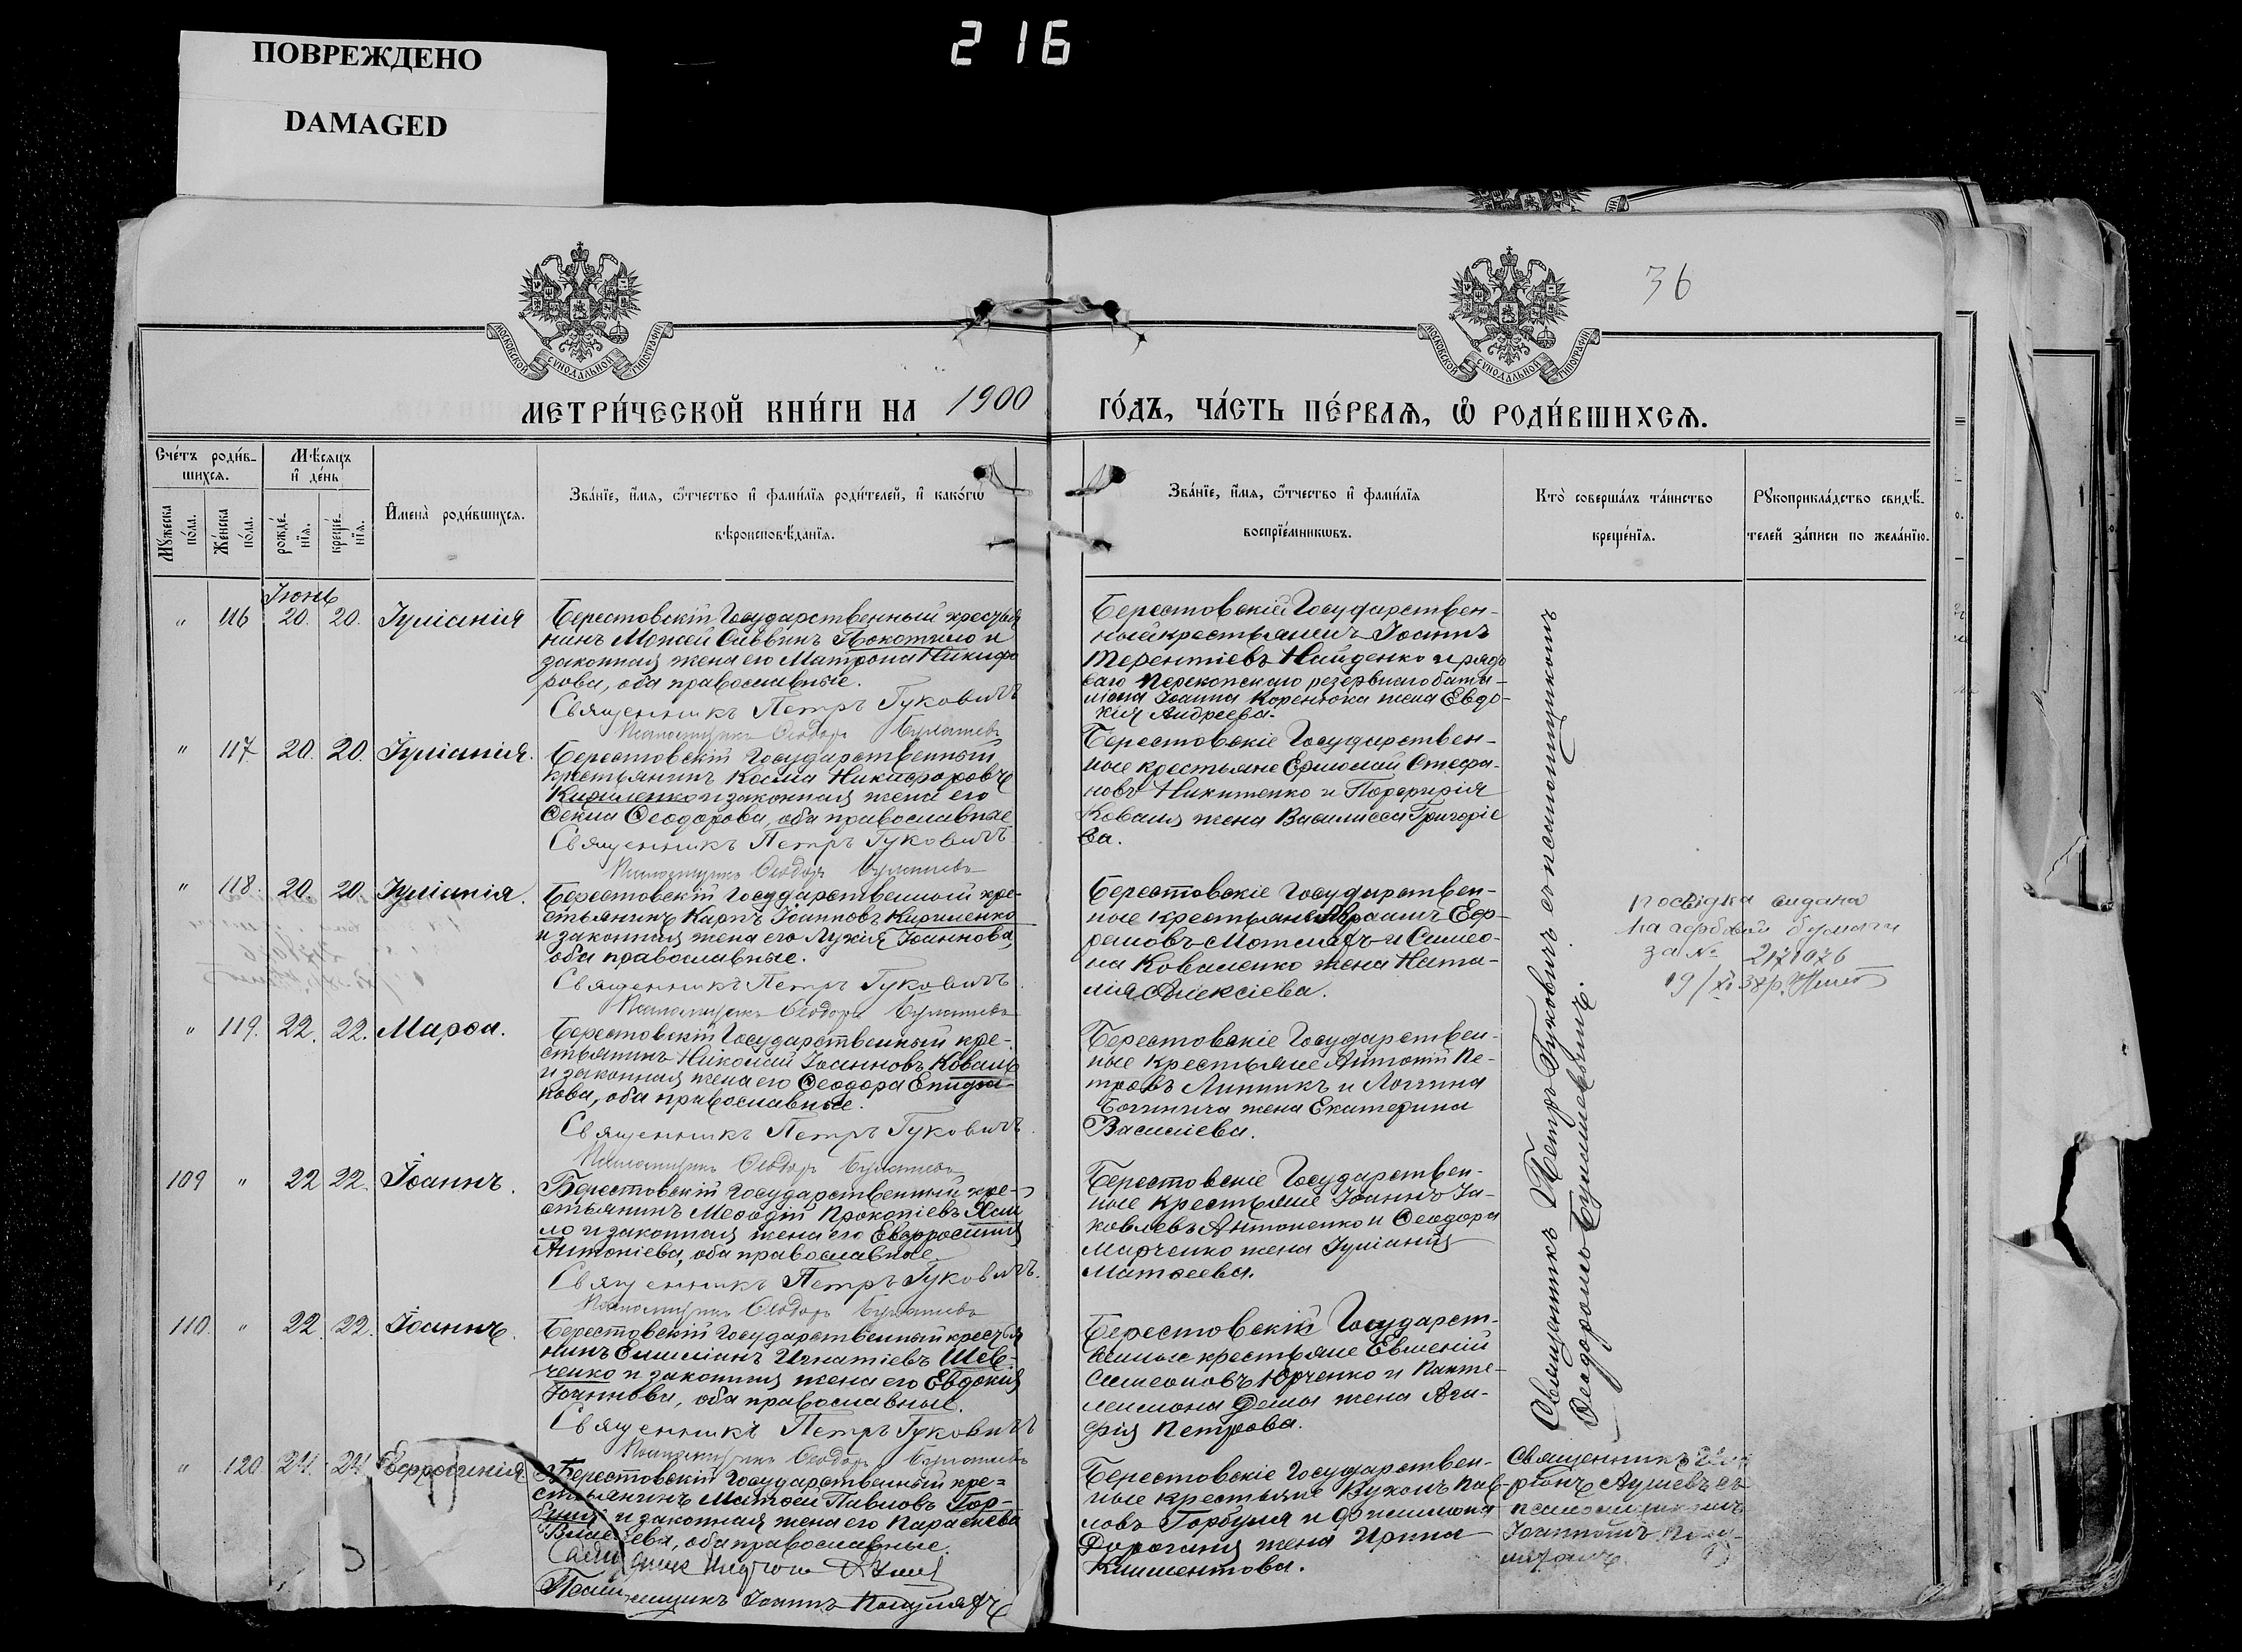 ПОВРЕЖДЕНО
DAMAGED
216
36
МОСКОВСКОЙ СУНОДАЛЬНОЙ ТИПОГРАФІИ
МОСКОВСКОЙ СУНОДАЛЬНОЙ ТИПОГРАФІИ
МЕТРИ́ЧЕСКОЙ КНИ́ГИ НА 1900 ГО́ДЪ, ЧА́СТЬ ПЕ́РВАЯ, Ѽ РОДИ́ВШИХСЯ.
Сче́тъ роди́в-
шихся.
Мѣ́сяцъ
и де́нь
Мꙋ́жеска по́ла.
Же́нска по́ла.
рожде́-
нїя.
креще́-
нїя.
Имена̀ роди́вшихся.
Зва́нїе, и́мя, ѻ҆́тчество и фамѝлїя роди́телей, и како́гѡ
вѣроисповѣ́данїя.
Зва́нїе, и́мя, ѻ҆́тчество и фамѝлїя
воспрїе́мникѡвъ.
Кто̀ соверша́лъ та́инство
креще́нїя.
Рꙋкоприкла́дство свидѣ́-
телей за́писи по жела́нїю.
Іюнь
" 116 20. 20. Іуліанія
Берестовскій Государственный крестья
нинъ Моисей Саввинъ Покотило и
законная жена его Матрона Никифо
рова, оба православные.
Священникъ Петръ Гуковичъ
Псаломщикъ Ѳеодоръ
Берестовскій Государствен-
ный крестьянинъ Іоаннъ
Терентіевъ Найденко и рядо
ваго Перекопскаго резервнаго баталь-
іона Іоанна Коренюка жена Евдо-
кія Андреева.
" 117 20. 20. Іуліанія.
Берестовскій Государственный
крестьянинъ Косма Никифоровъ
Кириленко и законная жена его
Ѳекла Ѳеодорова, оба православные
Священникъ Петръ Гуковичъ
Псаломщикъ Ѳеодоръ
Берестовскіе Государствен-
ные крестьяне Ермолай Стефа-
новъ Никитенко и Порфирія
Коваля жена Василисса Григоріе
ва.
" 118. 20. 20. Іуліанія.
Берестовскій Государственный кре-
стьянинъ Карпъ Іоанновъ Кириленко
и законная жена его Лукія Іоаннова
оба православные.
Священникъ Петръ Гуковичъ
Псаломщикъ Ѳеодоръ
Берестовскіе Государствен-
ные крестьяне Авраамъ Еф-
ремовъ и Симео-
на Коваленко жена Ната-
лія Алексіева.
посвідка видана
на гербовій бумаги
за № 2171076
19/XI 38 р.
" 119. 22. 22. Марѳа.
Берестовскій Государственный кре-
стьянинъ Николай Іоанновъ Коваль
и законная жена его Ѳеодора Епифа-
нова, оба православные.
Священникъ Петръ Гуковичъ.
Псаломщикъ Ѳеодоръ
Берестовскіе Государствен-
ные крестьяне Антоній Пе-
тровъ Линникъ и Логгина
жена Екатерина
Василіева.
109 " 22 22. Іоаннъ.
Берестовскій Государственный кре-
стьянинъ Меѳодій Прокопіевъ
ло и законная жена его Евфросинія
Антоніева, оба православные.
Священникъ Петръ Гуковичъ.
Псаломщикъ Ѳеодоръ
Берестовскіе Государствен-
ные крестьяне Іоаннъ Іа-
ковлевъ Антоненко и Ѳеодора
Марченко жена Іуліанія
Матѳеева.
110. " 22. 22. Іоаннъ.
Берестовскій Государственный крестья
нинъ Емиліанъ Игнатіевъ Шев-
ченко и законная жена его Евдокія
Іоаннова, оба православные.
Священникъ Петръ Гуковичъ
Псаломщикъ Ѳеодоръ
Берестовскій Государст-
венные крестьяне Евгеній
Симеоновъ Юрченко и Панте-
леимона Демы жена Ага-
фія Петрова.
Священникъ Петръ Гуковичъ съ псаломщикомъ
Ѳеодоромъ
" 120. 24. 24. Евфросинія
Берестовскій Государственный кре-
стьянинъ Матѳей Павловъ Гор-
буля и законная жена его Параскева
оба православные.
Псаломщикъ Іоаннъ
Берестовскіе Государствен-
ные крестьяне Вуколъ Пав-
ловъ Горбуля и Филимона
жена Ирина
Климентова.
Священникъ
псаломщикомъ
Іоанномъ